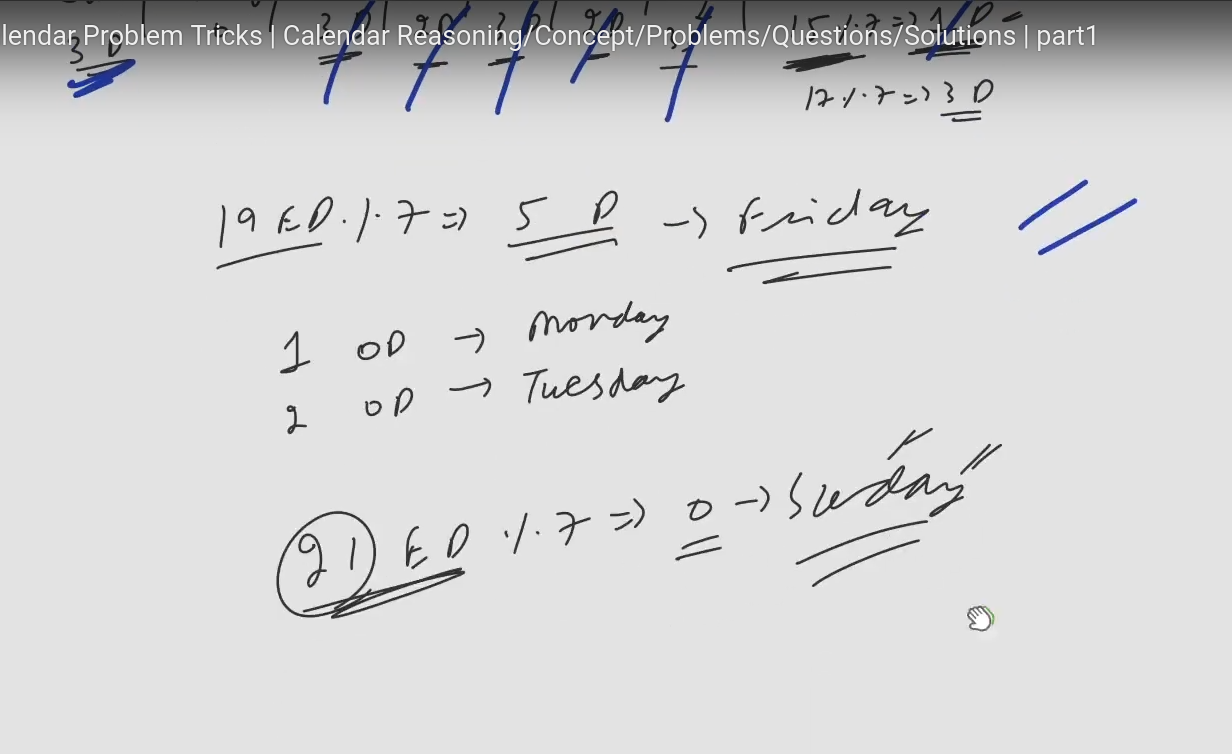 lendar Problem Tricks | Calendar Reasoning/Concept/Problems/Questions/Solutions | part1
3 D
3 D 2D 3 D 2D 3 15 % 7 => 1 D
17 % 7 => 3 D
19 ED % 7 => 5 D -> Friday
1 OD -> Monday
2 OD -> Tuesday
21 ED % 7 => 0 -> Sunday